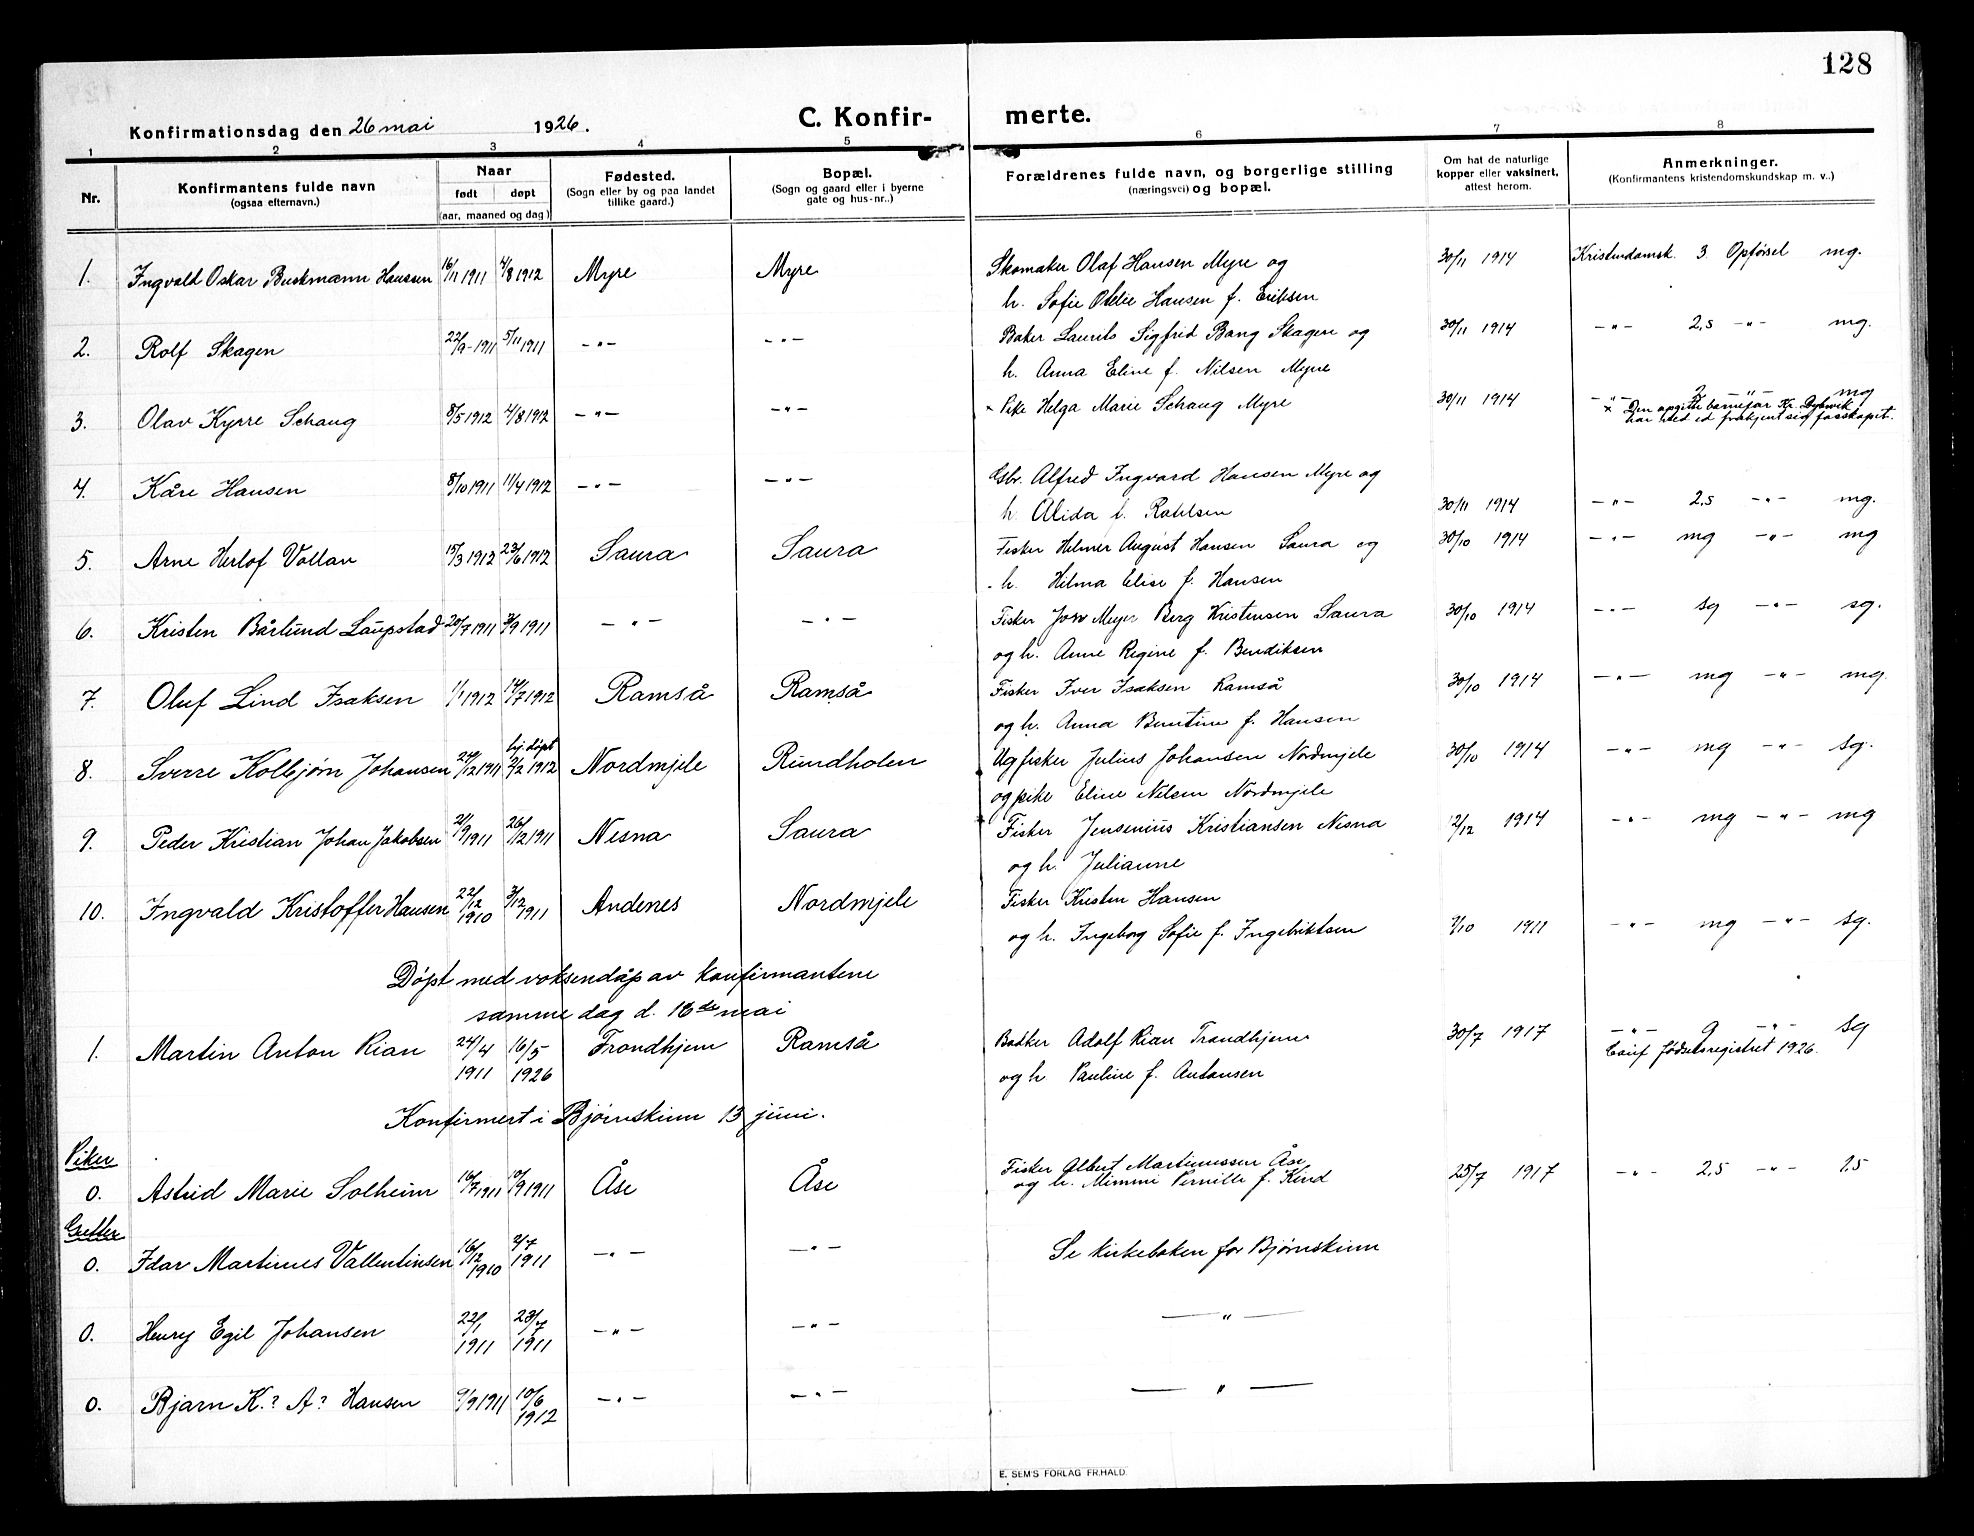 128
C. Konfirmerte.
Konfirmationsdag den 26 mai 1926.
1 2 3 4 5 6 7 8
Nr. Konfirmantens fulde navn (ogsaa efternavn.) Naar født døpt (aar, maaned og dag) Fødested. (Sogn eller by og paa landet tillike gaard.) Bopæl. (Sogn og gaard eller i byerne gate og hus-nr..) Forældrenes fulde navn, og borgerlige stilling (næringsvei) og bopæl. Om hat de naturlige kopper eller vaksinert, attest herom. Anmerkninger. (Konfirmantens kristendomskundskap m. v..)
1. Ingvald Oskar Buckmann Hansen 16/11 1911 4/8 1912 Myre Myre Skomaker Olaf Hansen Myre og 30/11 1914 Kristendomsk. 3 Opførsel mg.
h. Sofie Otelie Hansen f. Eriksen
2. Rolf Skagen 22/9-1911 5/11 1911 -"- -"- Baker Laurits Sigfred Bang Skagen og 30/11 1914 -"- 2,5 -"- mg.
h. Anna Eline f. Nilsen Myre
3. Olav Kyrre Schaug 8/5 1912 4/8 1912 -"- -"- × Pike Helga Marie Schaug Myre 30/11 1914 -"- 2 -"- mg
× Den opgitte barnefar Kr. Dybvik
har med ed frakjent sig farskapet.
4. Kåre Hansen 8/10 1911 11/4 1912 -"- -"- Gbr. Alfred Ingvard Hansen Myre og
h. Alida f. Rohlsen 30/11 1914 -"- 2,5 -"- mg.
5. Arne Herlof Vollan 15/3 1912 23/6 1912 Saura Saura Fisker Helmer August Hansen Saura og 30/10 1914 -"- mg -"- mg
h. Hilma Elise f. Hansen
6. Kristen Bårlund Laupstad 20/7 1911 3/9 1911 -"- -"- Fisker Jow Meyer Berg Kristensen Saura 30/10 1914 -"- sg -"- sg.
og h. Anne Regine f. Bendiksen
7. Oluf Lind Isaksen 1/1 1912 14/7 1912 Ramså Ramså Fisker Iver Isaksen Ramså 30/10 1914 -"- mg -"- mg.
og h. Anna Bentine f. Hansen
8. Sverre Kolbjørn Johansen 29/12 1911 hj. døpt 2/2 1912 Nordmjele Rundholen Ug fisker Julius Johansen Nordmjele 30/10 1914 -"- mg -"- sg.
og pike Eline Nilsen Nordmjele
9. Peder Kristian Johan Jakobsen 21/9 1911 26/12 1911 Nesna Saura Fisker Jensenius Kristiansen Nesna 12/12 1914 -"- mg -"- mg
og h. Julianne
10. Ingvald Kristoffer Hansen 22/12 1910 3/12 1911 Andenes Nordmjele Fisker Kristen Hansen
og h. Ingeborg Sofie f. Ingebriktsen 7/10 1911 -"- mg -"- sg.
Døpt med voksendåp av konfirmantene
samme dag d. 16de mai
1. Martin Anton Rian 24/4 1911 16/5 1926 Trondhjem Ramså Bødker Adolf Rian Trondhjem 30/7 1917 -"- 9 -"- sg
og h. Pauline f. Antonsen fødselsregistret 1926.
Konfirmert i Bjørnskinn 13 juni.
Piker
0. Astrid Marie Solheim 16/7 1911 10/9 1911 Åse Åse Fisker Albert Martinussen Åse 25/7 1917 -"- 2,5 -"- 1.5
og h. Mimmi Pernille f. Kind
Gutter
0. Idar Martinus Vallentinsen 16/12 1910 2/7 1911 -"- -"- Se kirkeboken for Bjørnskinn
0. Henry Egil Johansen 22/1 1911 23/7 1911 -"- -"- -"-
0. Bjarn K.? A? Hansen 9/9 1911 10/6 1912 -"- -"- -"-
E. SEM'S FORLAG FR.HALD